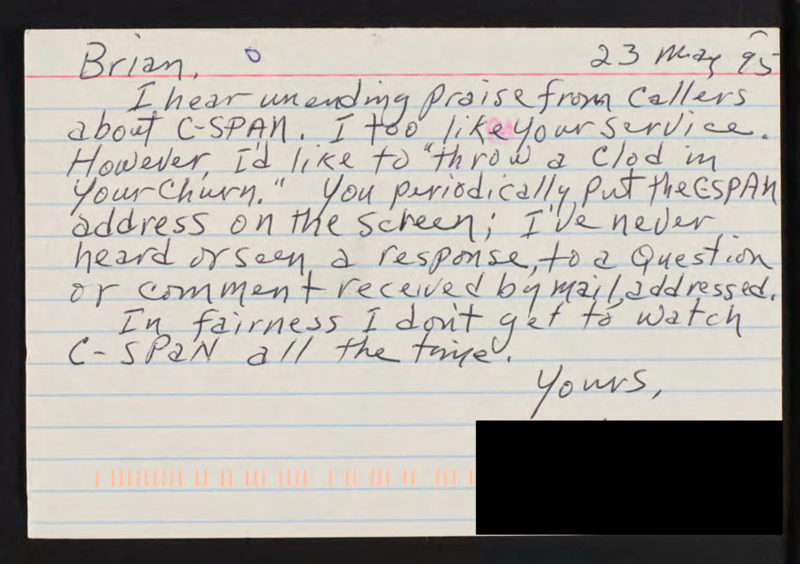 Brian, 23 May 95
I hear unending praise from callers
about C-SPAN. I too like your service.
However, I'd like to "throw a Clod in
Your Churn." You periodically put the CSPAN
address on the screen; I've never
heard or seen a response, to a Question
or comment received by mail, addressed.
In fairness I don't get to watch
C-SPaN all the time.
Yours,